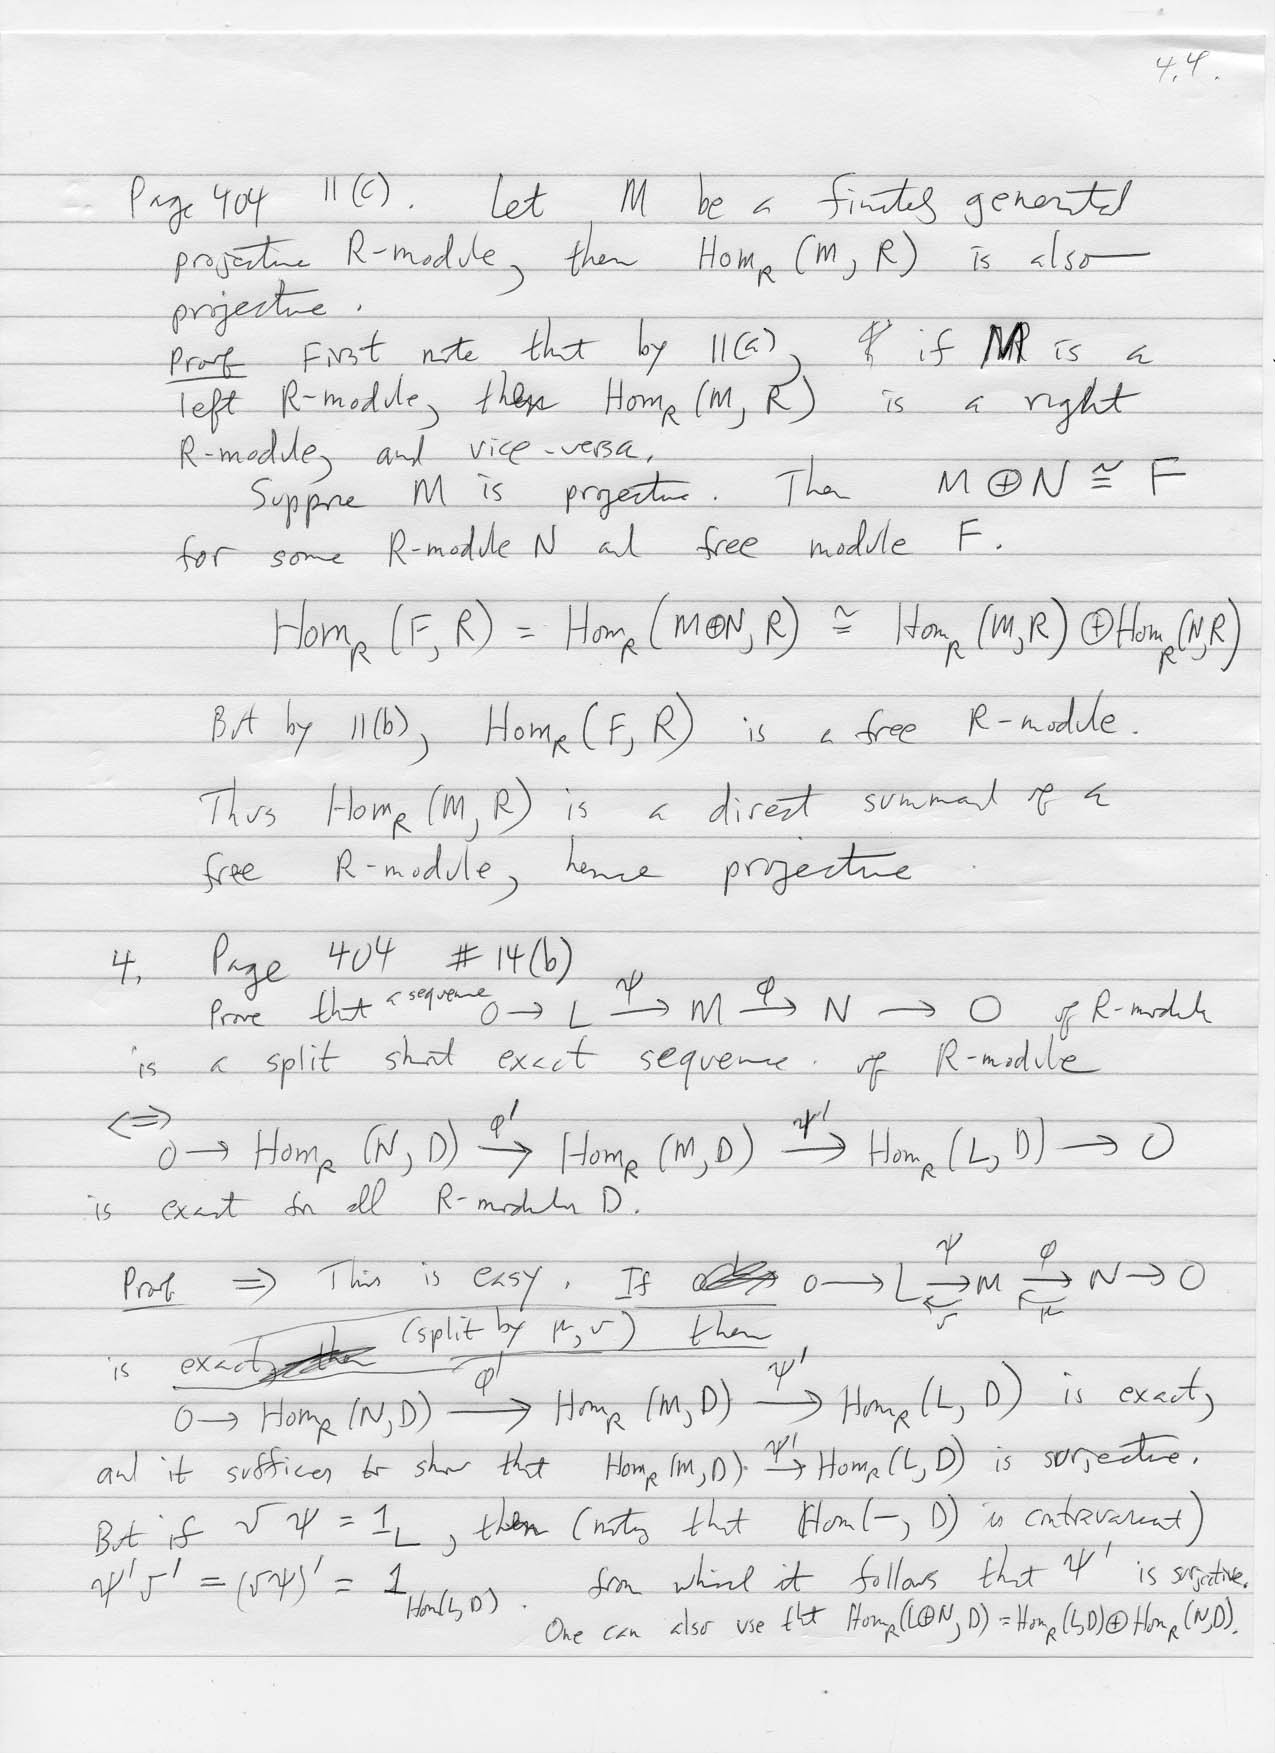 4.4.
Page 404 11(c). Let M be a finitely generated
projective R-module, then Hom_R (M, R) is also
projective.
Proof First note that by 11(a), if M is a
left R-module, then Hom_R (M, R) is a right
R-module, and vice-versa.
Suppose M is projective. Then M ⊕ N ≅ F
for some R-module N and free module F.
Hom_R (F, R) = Hom_R (M⊕N, R) ≅ Hom_R (M,R) ⊕ Hom_R (N,R)
But by 11(b), Hom_R (F, R) is a free R-module.
Thus Hom_R (M, R) is a direct summand of a
free R-module, hence projective
4. Page 404 #14(b)
Prove that a sequence 0 → L —ψ→ M —φ→ N → 0 of R-module
is a split short exact sequence. of R-module
<=>
0 → Hom_R (N, D) —φ'→ Hom_R (M, D) —ψ'→ Hom_R (L, D) → 0
is exact for all R-modules D.
Proof ⇒ This is easy. If 0 → L —ψ→ M —φ→ N → 0
ν μ
(split by μ, ν) then
is exact,
0 → Hom_R (N, D) —φ'→ Hom_R (M, D) —ψ'→ Hom_R (L, D) is exact,
and it suffices to show that Hom_R (M, D) —ψ'→ Hom_R (L, D) is surjective.
But if νψ = 1_L, then (noting that Hom(-, D) is contravariant)
ψ'ν' = (νψ)' = 1_Hom(L,D). from which it follows that ψ' is surjective.
One can also use that Hom_R(L⊕N, D) = Hom_R(L,D) ⊕ Hom_R(N,D).